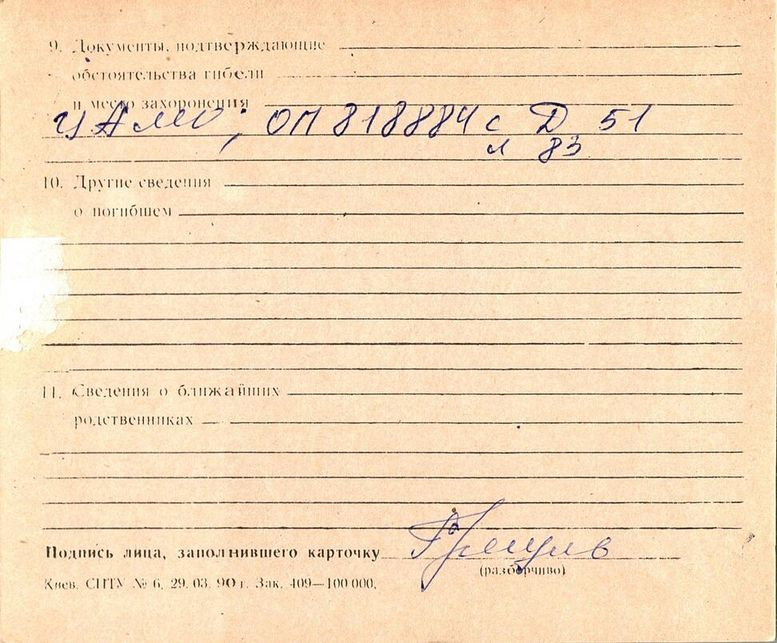 9. Документы, подтверждающие
обстоятельства гибели
и место захоронения
ЦАМО, ОП 818884 с Д 51
л 83
10. Другие сведения
о погибшем
11. Сведения о ближайших
родственниках
Подпись лица, заполнившего карточку
(разборчиво)
Киев. СПТУ № 6, 29. 03. 90 г. Зак. 409—100 000.